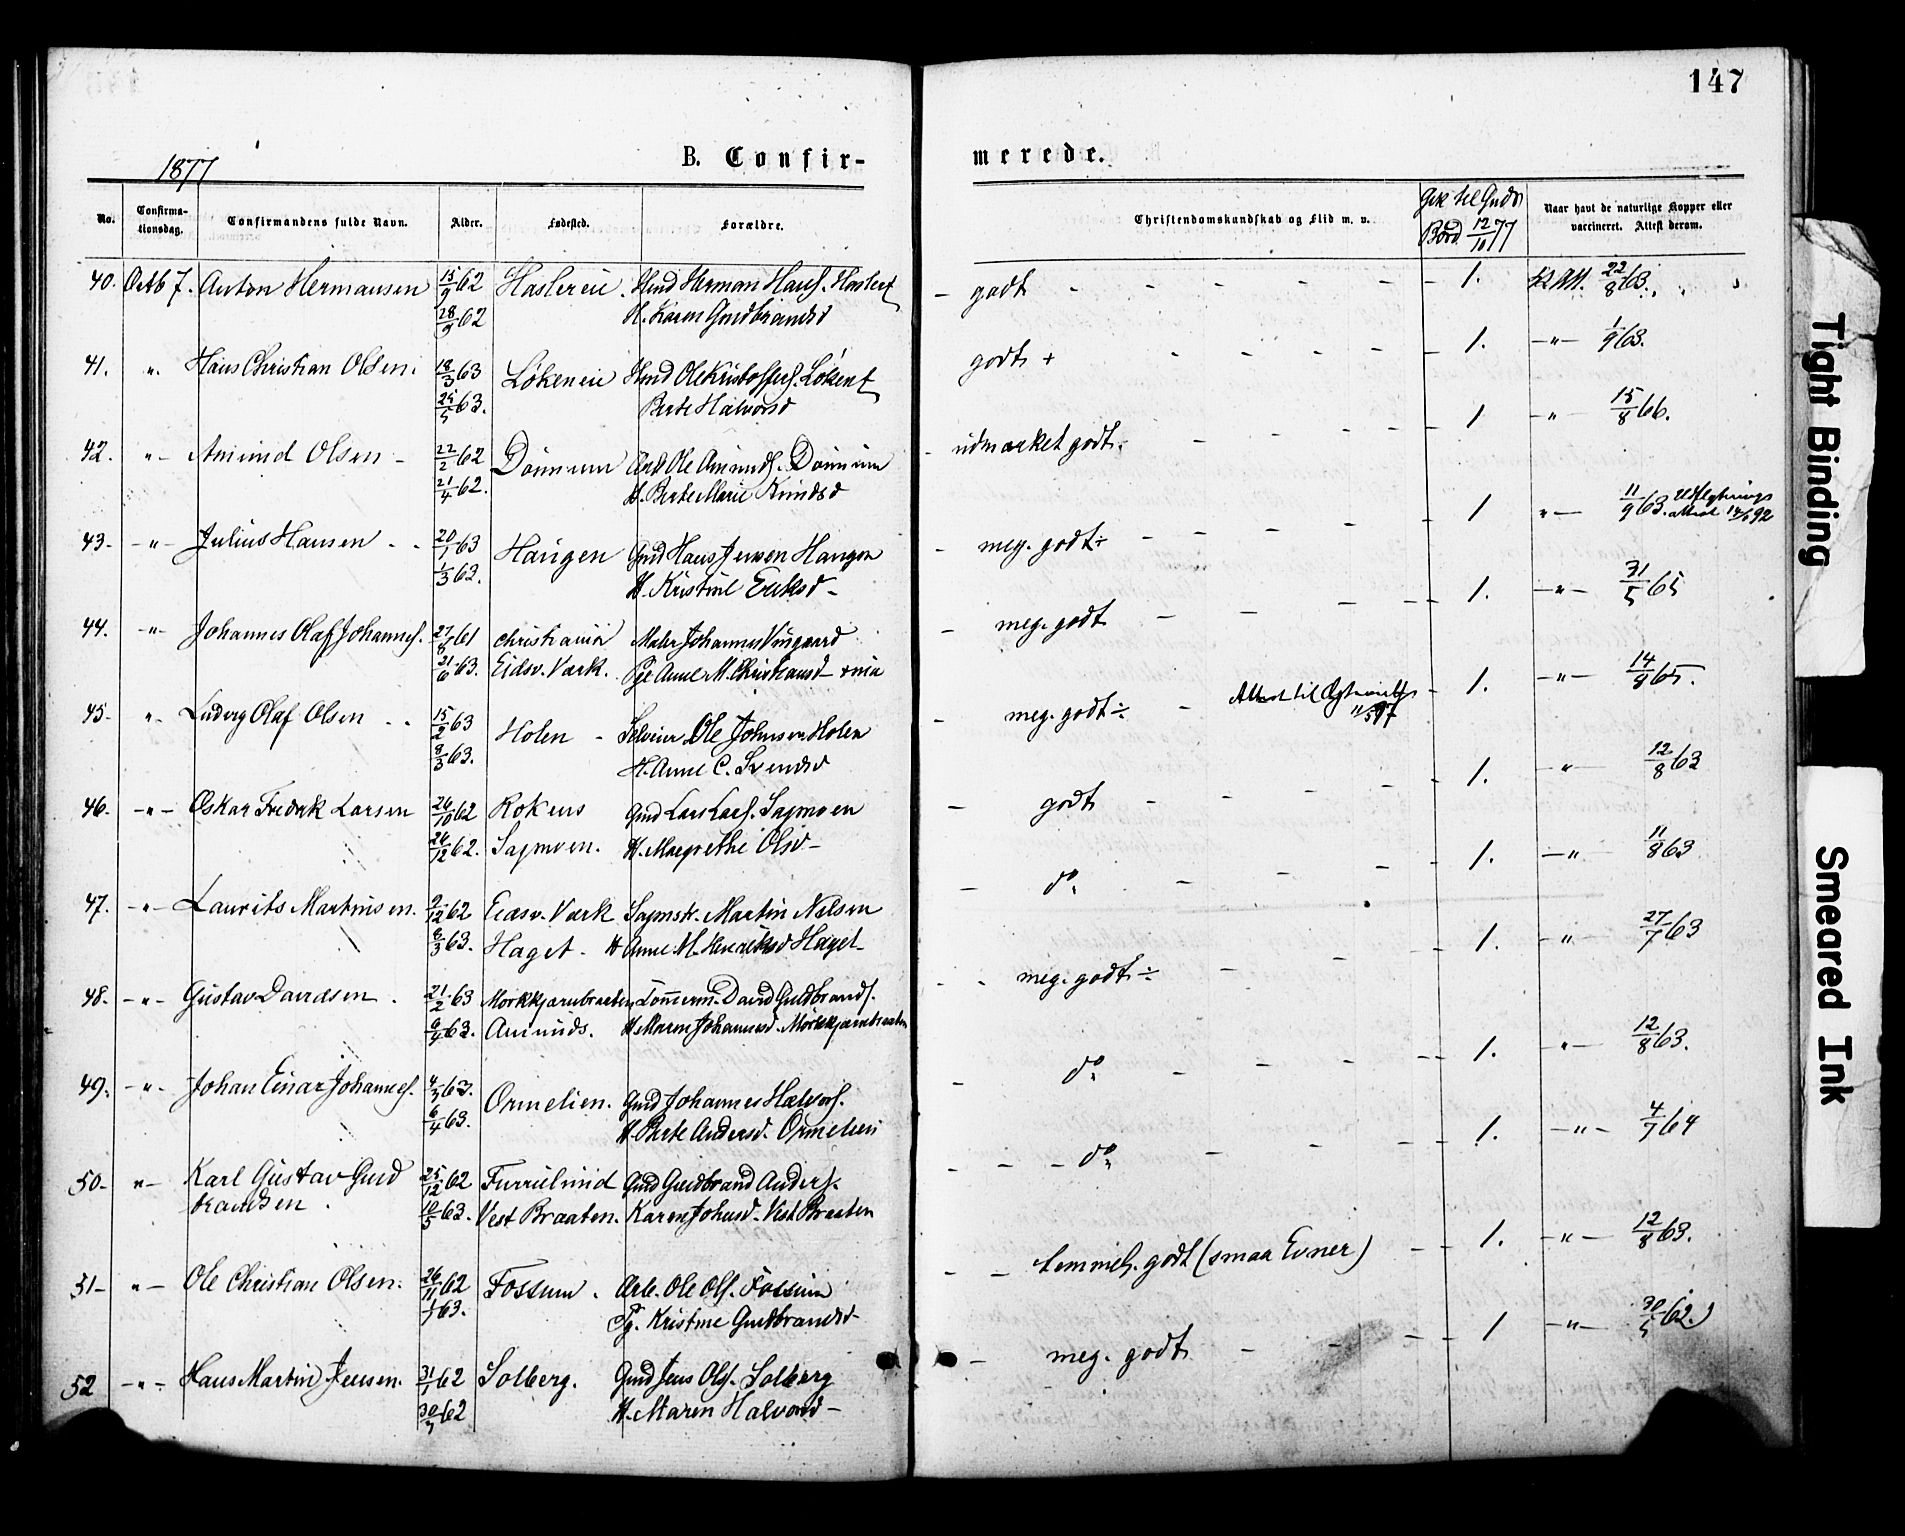 147
1877
B. Confir-
merede.
No.
Confirma-
tionsdag.
Confirmandens fulde Navn.
Alder.
Fødested.
Forældre.
Christendomskundskab og Flid m. v.
Gik til Guds
Bord 12/10 77
Naar havt de naturlige Kopper eller
vaccineret. Attest derom.
40. Octb 7. Anton Hermansen 15/9 62 Haslereie. Hmd Herman Hans. Haslerf
28/9 62 H. Karen Gudbrandsd
– godt – 1. 22/8 63.
41. " Hans Christian Olsen. 18/3 63 Løkeneie Hmd Ole Kristoffers. Løkenf
25/5 63. Berte Halvorsd
godt + – 1. –"– 1/9 63.
42. "– Amund Olsen – 22/2 62 Dønnum Arb Ole Amunds. Dønnum
21/4 62. H. Berte Marie Knudsd
– udmærket godt – 1 " – 15/8 66.
43. –"– Julius Hansen – 20/1 63 Haugen Gmd Hans Jensen Haugen
1/3 63. H. Kristine Eriksd –
– meg. godt ÷ – 1 " – 11/9 63. Udflytnings
attest 14/5 92
44. –"– Johannes Olaf Johannes. 27/8 61 Christiania Maler Johannes Vingaard
21/6 63. Eidsv. Værk. Pge Anne M. Christiansd – xnia
– meg. godt – 1. –"– 31/5 65
45. "– Ludvig Olaf Olsen – 15/2 63 Holen – Selveier Ole Johnsen Holen
8/3 63. H. Anne C. Svendsd
– meg. godt ÷ – Attest til 11/5 97 – 1. –"– 14/8 65.
46. –"– Oskar Fredrik Larsen 26/10 62 Rokeus Gmd Lars Lars. Sagmoen
26/12 62. Sagmoen. H. Margrethe Olsd –
– godt – 1. –"– 12/8 63
47. –"– Laurits Martinsen. 2/12 62 Eidsv. Værk Sagmstr. Martin Nilsen
8/3 63. Haget – H Anne M. Henriksd Haget
– do – 1. –"– 11/8 63
48. –"– Gustav Davidsen. 21/2 63 Mørkkjernbraaten Tømmerm. David Guldbrands.
6/4 63. Amunds. H. Maren Johannesd. Mørkkjernbraaten
– meg. godt ÷ – 1. –"– 27/7 63
49. –"– Johan Einar Johannes. 63. Ormelien. Gmd Johannes Halvors.
6/4 63. H. Berte Andersd. Ormelien
– do – 1. –"– 12/8 63.
50– "– Karl Gustav Gud 25/12 62 Furrulund Gmd Gudbrand Anders.
brandsen. 10/5 63. Vest Braaten. Karen Johnsd. Vest Braaten
– do – 1. –"– 4/7 64
51– "– Ole Christian Olsen. 26/11 62 Fossum. Arb. Ole Ols. Fossum
1/1 63. Pg. Kristine Gudbrandsd –
– temmel. godt (smaa Evner) – 1. –"– 12/8 63.
52 –"– Hans Martin Jensen. 31/1 62 Solberg. Gmd Jens Ols. Solberg
30/3 62 H. Maren Halvorsd –
– meg. godt – 1 –"– 30/5 62.
Tight Binding
Smeared Ink